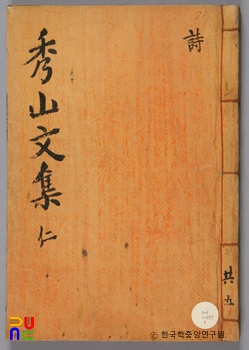 秀山文集 仁
詩
共五
PUNE
ⓒ 한국학중앙연구원